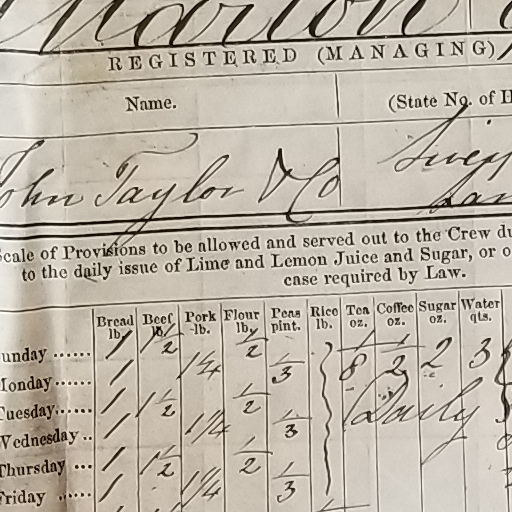 Marion
REGISTERED (MANAGING)
Name. (State No. of H
John Taylor & Co
Scale of Provisions to be allowed and served out to the Crew du
to the daily issue of Lime and Lemon Juice and Sugar, or o
case required by Law.
Bread lb. Beef lb. Pork lb. Flour lb. Peas pint. Rice lb. Tea oz. Coffee oz. Sugar oz. Water qts.
Sunday ...... 1 1 1/2 1/2 1/8 1/2 2 3
Monday ...... 1 1 1/4 1/3 Daily
Tuesday...... 1 1 1/2 1/2
Wednesday .. 1 1 1/4 1/3
Thursday ... 1 1 1/2 1/2
Friday ...... 1 1 1/4 1/3